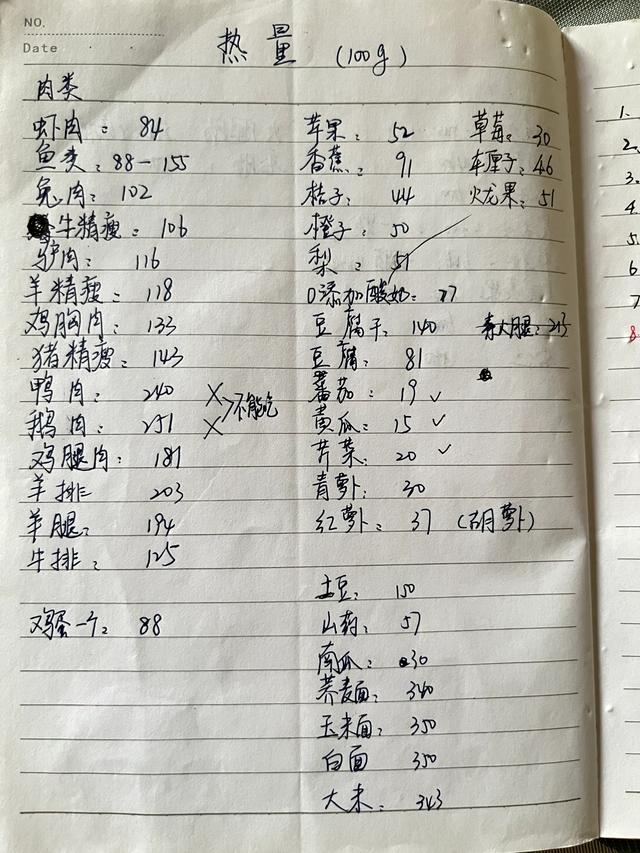 NO.
Date
热量 (100g)
肉类
虾肉: 84
鱼类: 88-155
兔肉: 102
牛精瘦: 106
驴肉: 116
羊精瘦: 118
鸡胸肉: 133
猪精瘦: 143
鸭肉: 240 ×
鹅肉: 251 ×
>不能吃
鸡腿肉: 181
羊排 203
羊腿: 194
牛排: 125
鸡蛋一个: 88
苹果: 52
香蕉: 91
桔子: 44
橙子: 50
梨: 51
0添加酸奶: 77
豆腐干: 140
豆腐: 81
蕃茄: 19 ✓
黄瓜: 15 ✓
芹菜: 20 ✓
青萝卜: 30
红萝卜: 37 (胡萝卜)
土豆: 150
山药: 57
南瓜: 30
荞麦面: 340
玉米面: 350
白面 350
大米: 343
草莓: 30
车厘子: 46
火龙果: 51
1.
2.
3.
4
5
6
7
8